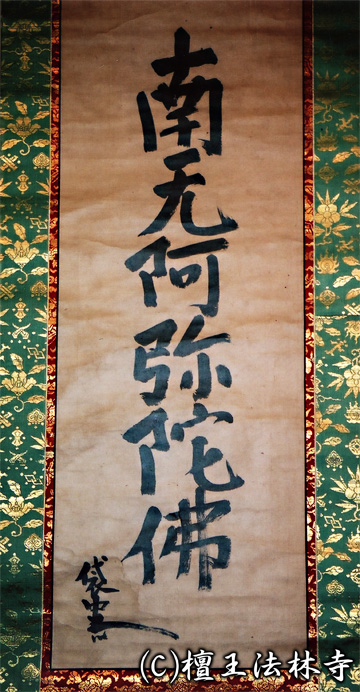 南无阿弥陀佛
袋中
(C)檀王法林寺